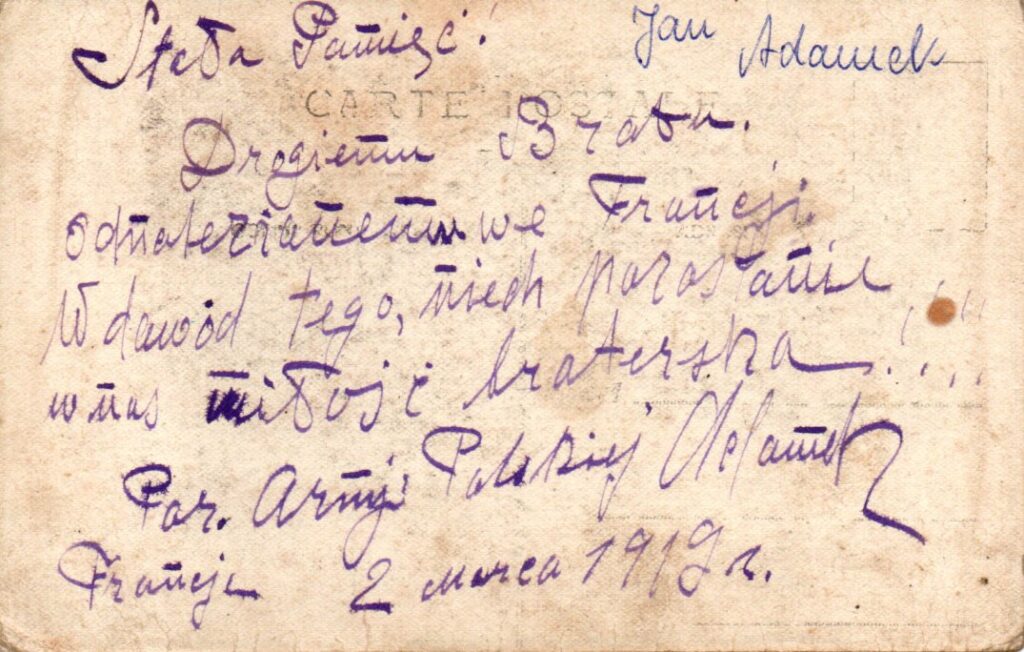 Stała Pamięć!
Jan Adamek
CARTE POSTALE
Drogiemu Bratu.
odnalezionemu we Francji
W dowód tego, niech pozostanie
w nas miłość braterska.....
Por. Armji Polskiej Adamek
Francja 2 marca 1919 r.